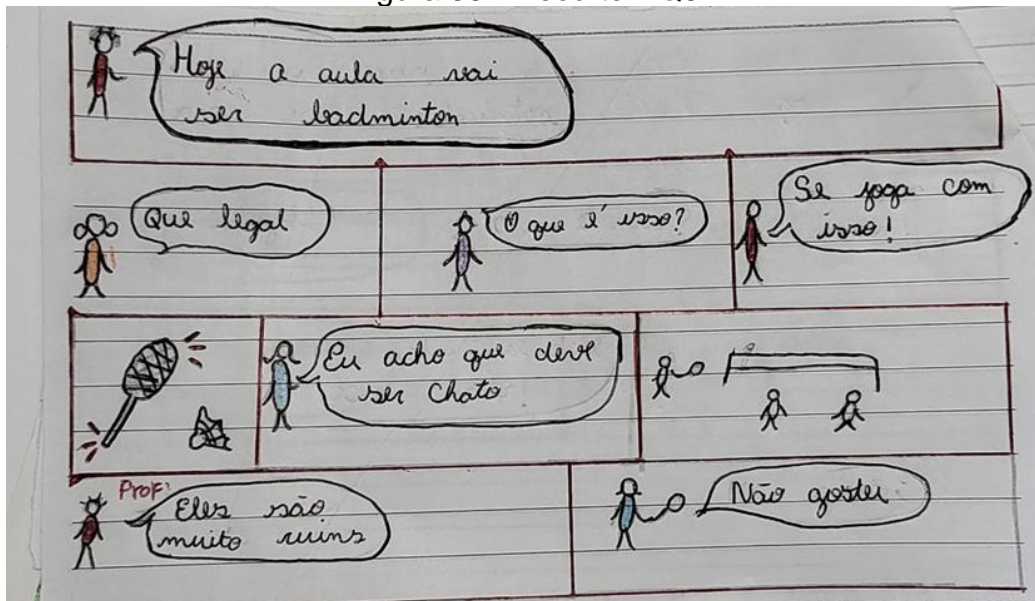 Hoje a aula vai
ser badminton
Que legal
O que é isso?
Se joga com
isso!
Eu acho que deve
ser chato
Prof:
Eles são
muito ruins
Não gostei